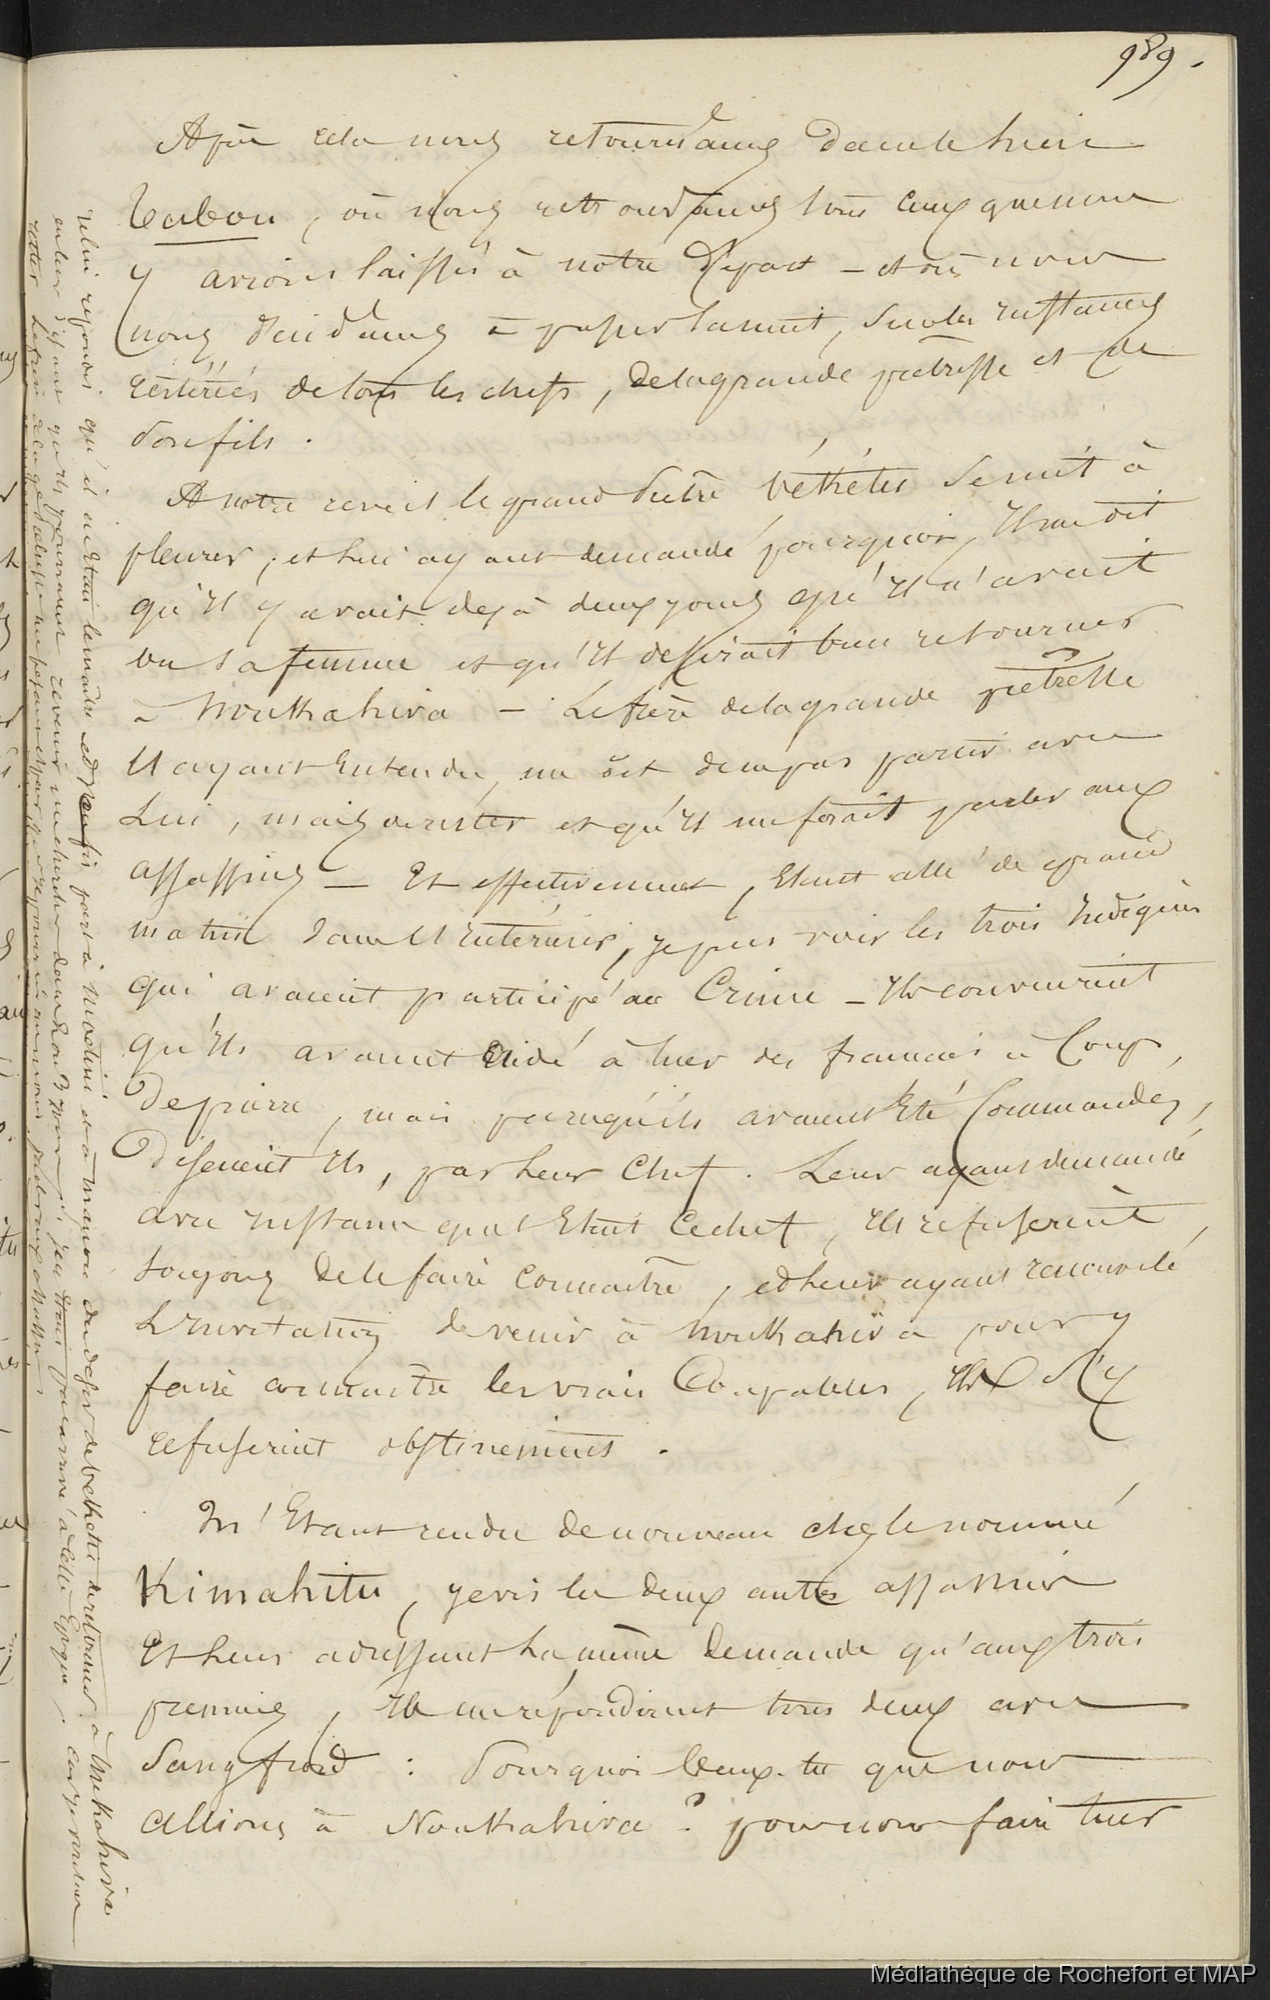 989.
Après cela nous retournâmes dans le lieu
tabou, où nous retrouvâmes tous ceux que nous
y avions laissés à notre départ – et où nous
nous décidâmes à passer la nuit, sur les instances
réitérées de tous les chefs, de la grande prêtresse et de
son fils.
A notre réveil le grand Prêtre Vékétéü se mit à
pleurer, et lui ayant demandé pourquoi, Il me dit
qu'Il y avait dejà deux jours qu'Il n'avait
vu sa femme et qu'Il dessirait bien retourner
à Noukahiva – Le frère de la grande prêtresse
L'ayant Entendu, me dit de ne pas partir avec
Lui, mais de rester et qu'Il me ferait parler aux
assassins – Et effectivement, Etant allé de grand
matin dans L'intérieur, je pus voir les trois Indigènes
qui avaient participé au Crime – Ils convenaient
qu'Ils avaient aidé à tuer des français à Coup
de pierre, mais parcequ'ils avaient Eté Commandés,
disaient Ils, par leur Chef. Leur ayant demandé
avec instance quel Etait Ce chef, Ils refuserent
toujours de le faire connaitre, et leur ayant renouvelé
L'invitation de venir à Noukahiva pour y
faire connaitre les vrais Coupables, Ils s'y
refuserent obstinement.
M'Etant rendu de nouveau chez le nommé
Kimahitu, je vis les deux autres assassins
Et leur adressant La même demande qu'aux trois
premiers, Ils me répondirent tous deux avec
Sang froid : Pourquoi Veux-tu que nous
allions à Noukahiva ? pour nous faire tuer
celui répondis qu'il était le maitre et partis à et à du désir de de retourner à Nukahiva
en leur disant qu'ils pourraient revenir me chercher dans jours, à cette Epoque, car je voulais
rester
Médiathèque de Rochefort et MAP